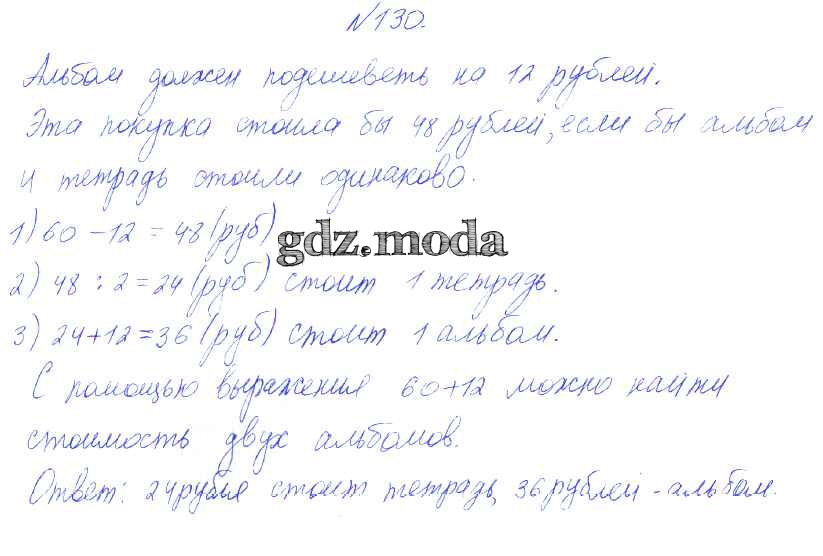 №130.
Альбом должен подешеветь на 12 рублей.
Эта покупка стоила бы 48 рублей, если бы альбом
и тетрадь стоили одинаково.
1) 60 - 12 = 48 (руб)
gdz.moda
2) 48 : 2 = 24 (руб) стоит 1 тетрадь.
3) 24 + 12 = 36 (руб) стоит 1 альбом.
С помощью выражения 60+12 можно найти
стоимость двух альбомов.
Ответ: 24 рубля стоит тетрадь, 36 рублей - альбом.